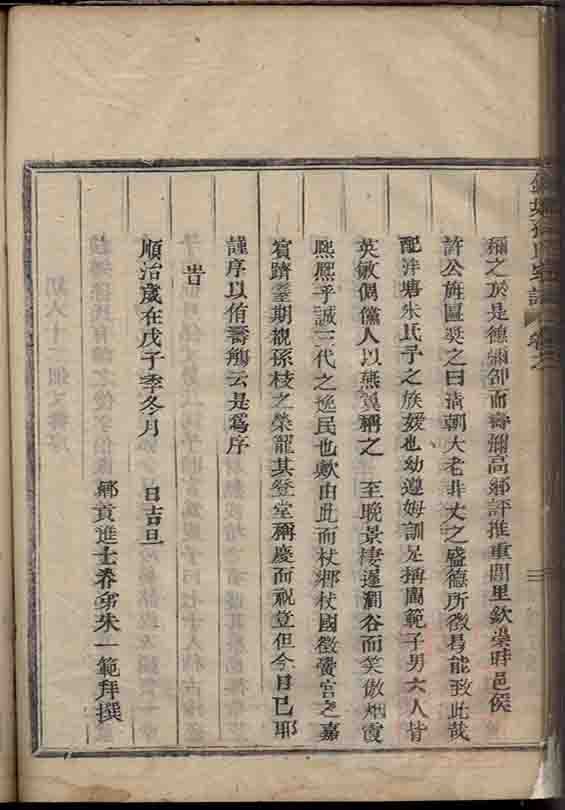 彌之於是德彌卲而壽彌高鄉評推重閭里欽㒵時邑侯
許公旌匾奬之曰清朝大老非丈之盛德所徵曷能致此哉
配泮塘朱氏予之族媛也幼遵姆訓足稱閫範子男六人皆
英敏倜儻人以燕翼稱之 至晚景棲遲澗谷而笑傲烟霞
熈熈乎誠三代之逸民也歟由此而杖鄉杖國徵黌宮之嘉
賓躋耋期覩孫枝之榮寵其登堂稱慶而祝豈但今日已耶
謹序以侑壽觴云是爲序
旹
順治歲在戊子季冬月 日吉旦
鄉貢進士眷弟朱一範拜撰